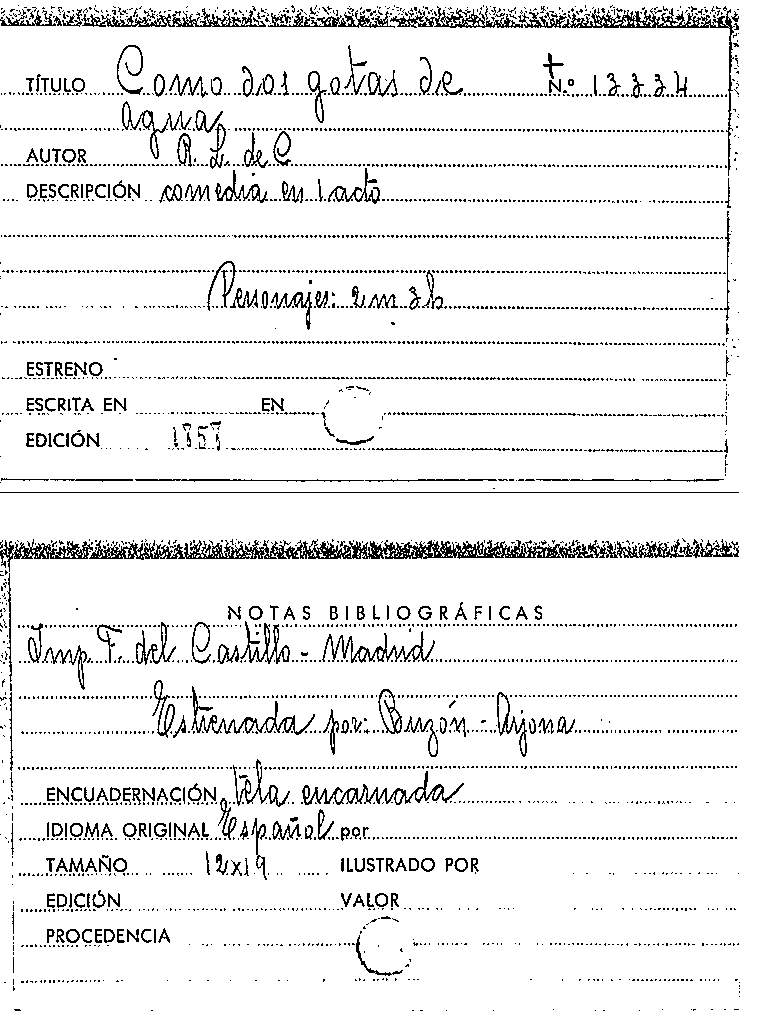 TÍTULO Como dos gotas de N.º 13334
agua
AUTOR R. L. de C
DESCRIPCIÓN comedia en 1 acto
Personajes: 2 m 3 h
ESTRENO
ESCRITA EN EN
EDICIÓN 1858
NOTAS BIBLIOGRÁFICAS
Imp. F. del Castillo - Madrid
Estrenada por: Buzón - Arjona
ENCUADERNACIÓN tela encarnada
IDIOMA ORIGINAL Español por
TAMAÑO 12x19 ILUSTRADO POR
EDICIÓN VALOR
PROCEDENCIA